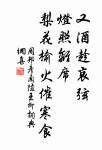 又酒趁哀弦
燈照離席
梨花榆火催寒食
周邦彥蘭陵王柳詞典